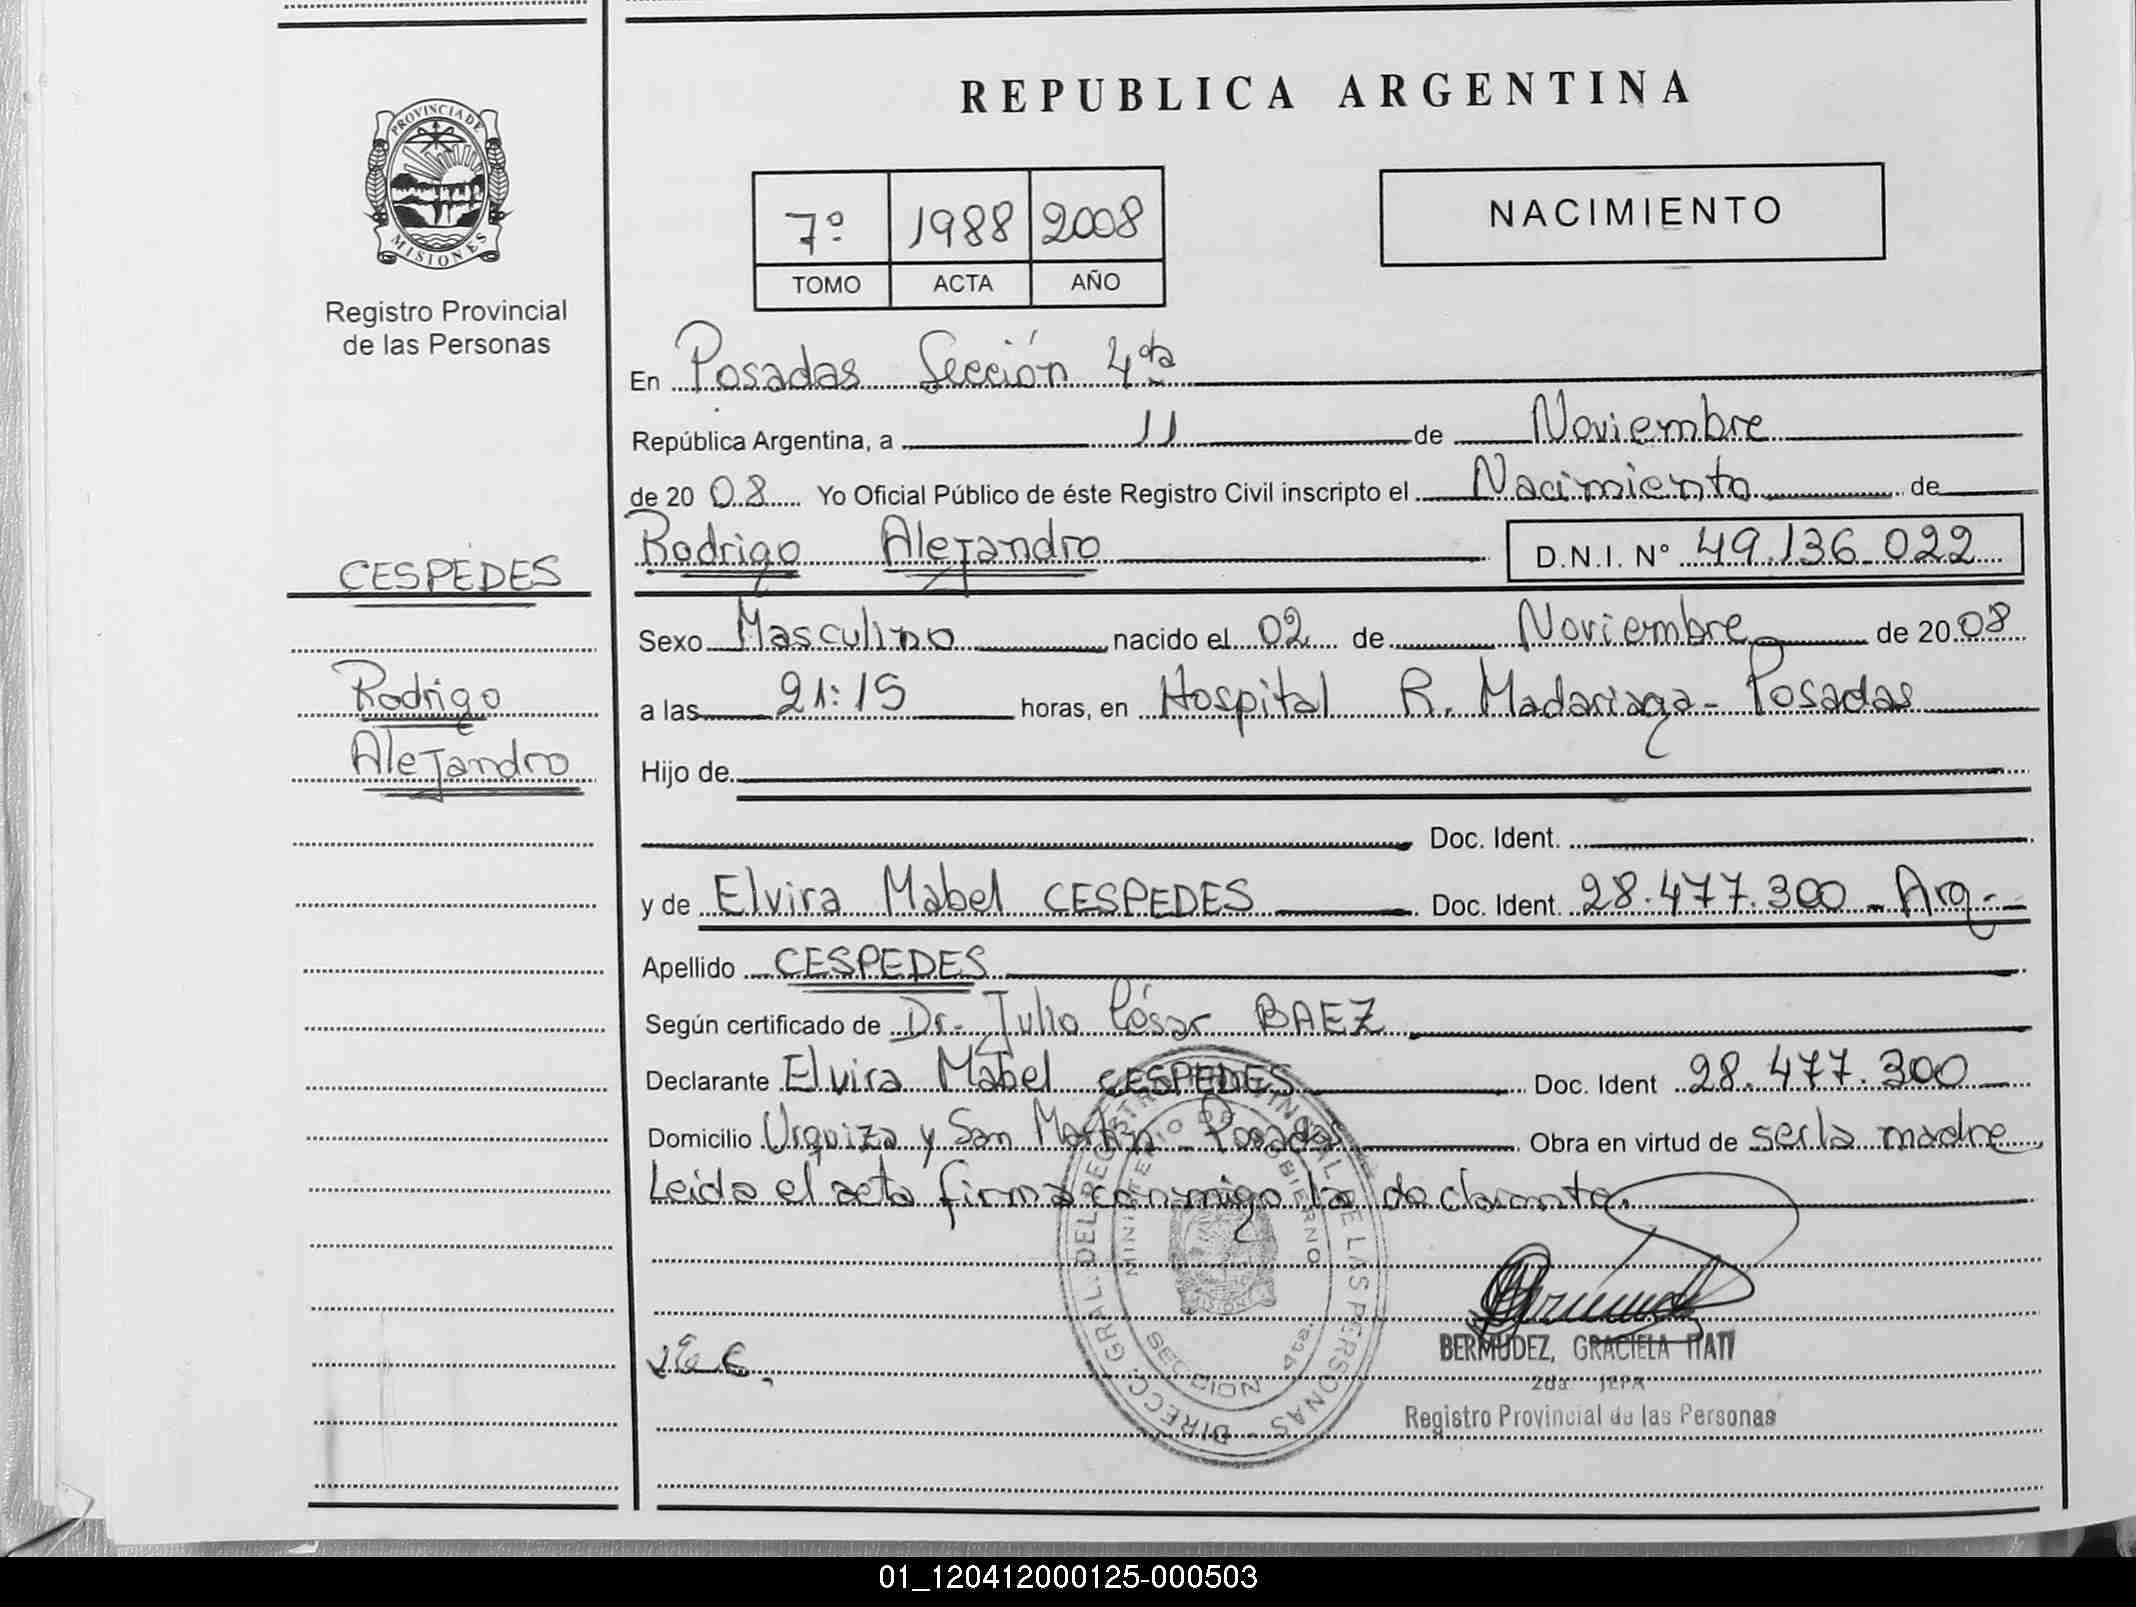 PROVINCIA DE
MISIONES
Registro Provincial
de las Personas
CESPEDES
Rodrigo
Alejandro
REPUBLICA ARGENTINA
7º 1988 2008
TOMO ACTA AÑO
NACIMIENTO
En Posadas Sección 4ta
República Argentina, a 11 de Noviembre
de 20 08 Yo Oficial Público de éste Registro Civil inscripto el Nacimiento de
Rodrigo Alejandro D.N.I. N° 49.136.022
Sexo Masculino nacido el 02 de Noviembre de 20 08
a las 21:15 horas, en Hospital R. Madariaga - Posadas
Hijo de
Doc. Ident.
y de Elvira Mabel CESPEDES Doc. Ident. 28.477.300 - Arg.-
Apellido CESPEDES
Según certificado de Dr. Julio César BAEZ
Declarante Elvira Mabel CESPEDES Doc. Ident 28.477.300
Domicilio Urquiza y San Martín - Posadas Obra en virtud de ser la madre
Leida el acta firma conmigo la declarante.
DIRECC. GRAL. DEL REGISTRO PROVINCIAL DE LAS PERSONAS
MINISTERIO DE GOBIERNO
SECCION 4ta.
BERMUDEZ, GRACIELA ITATI
2da JEFA
Registro Provincial de las Personas
01_120412000125-000503